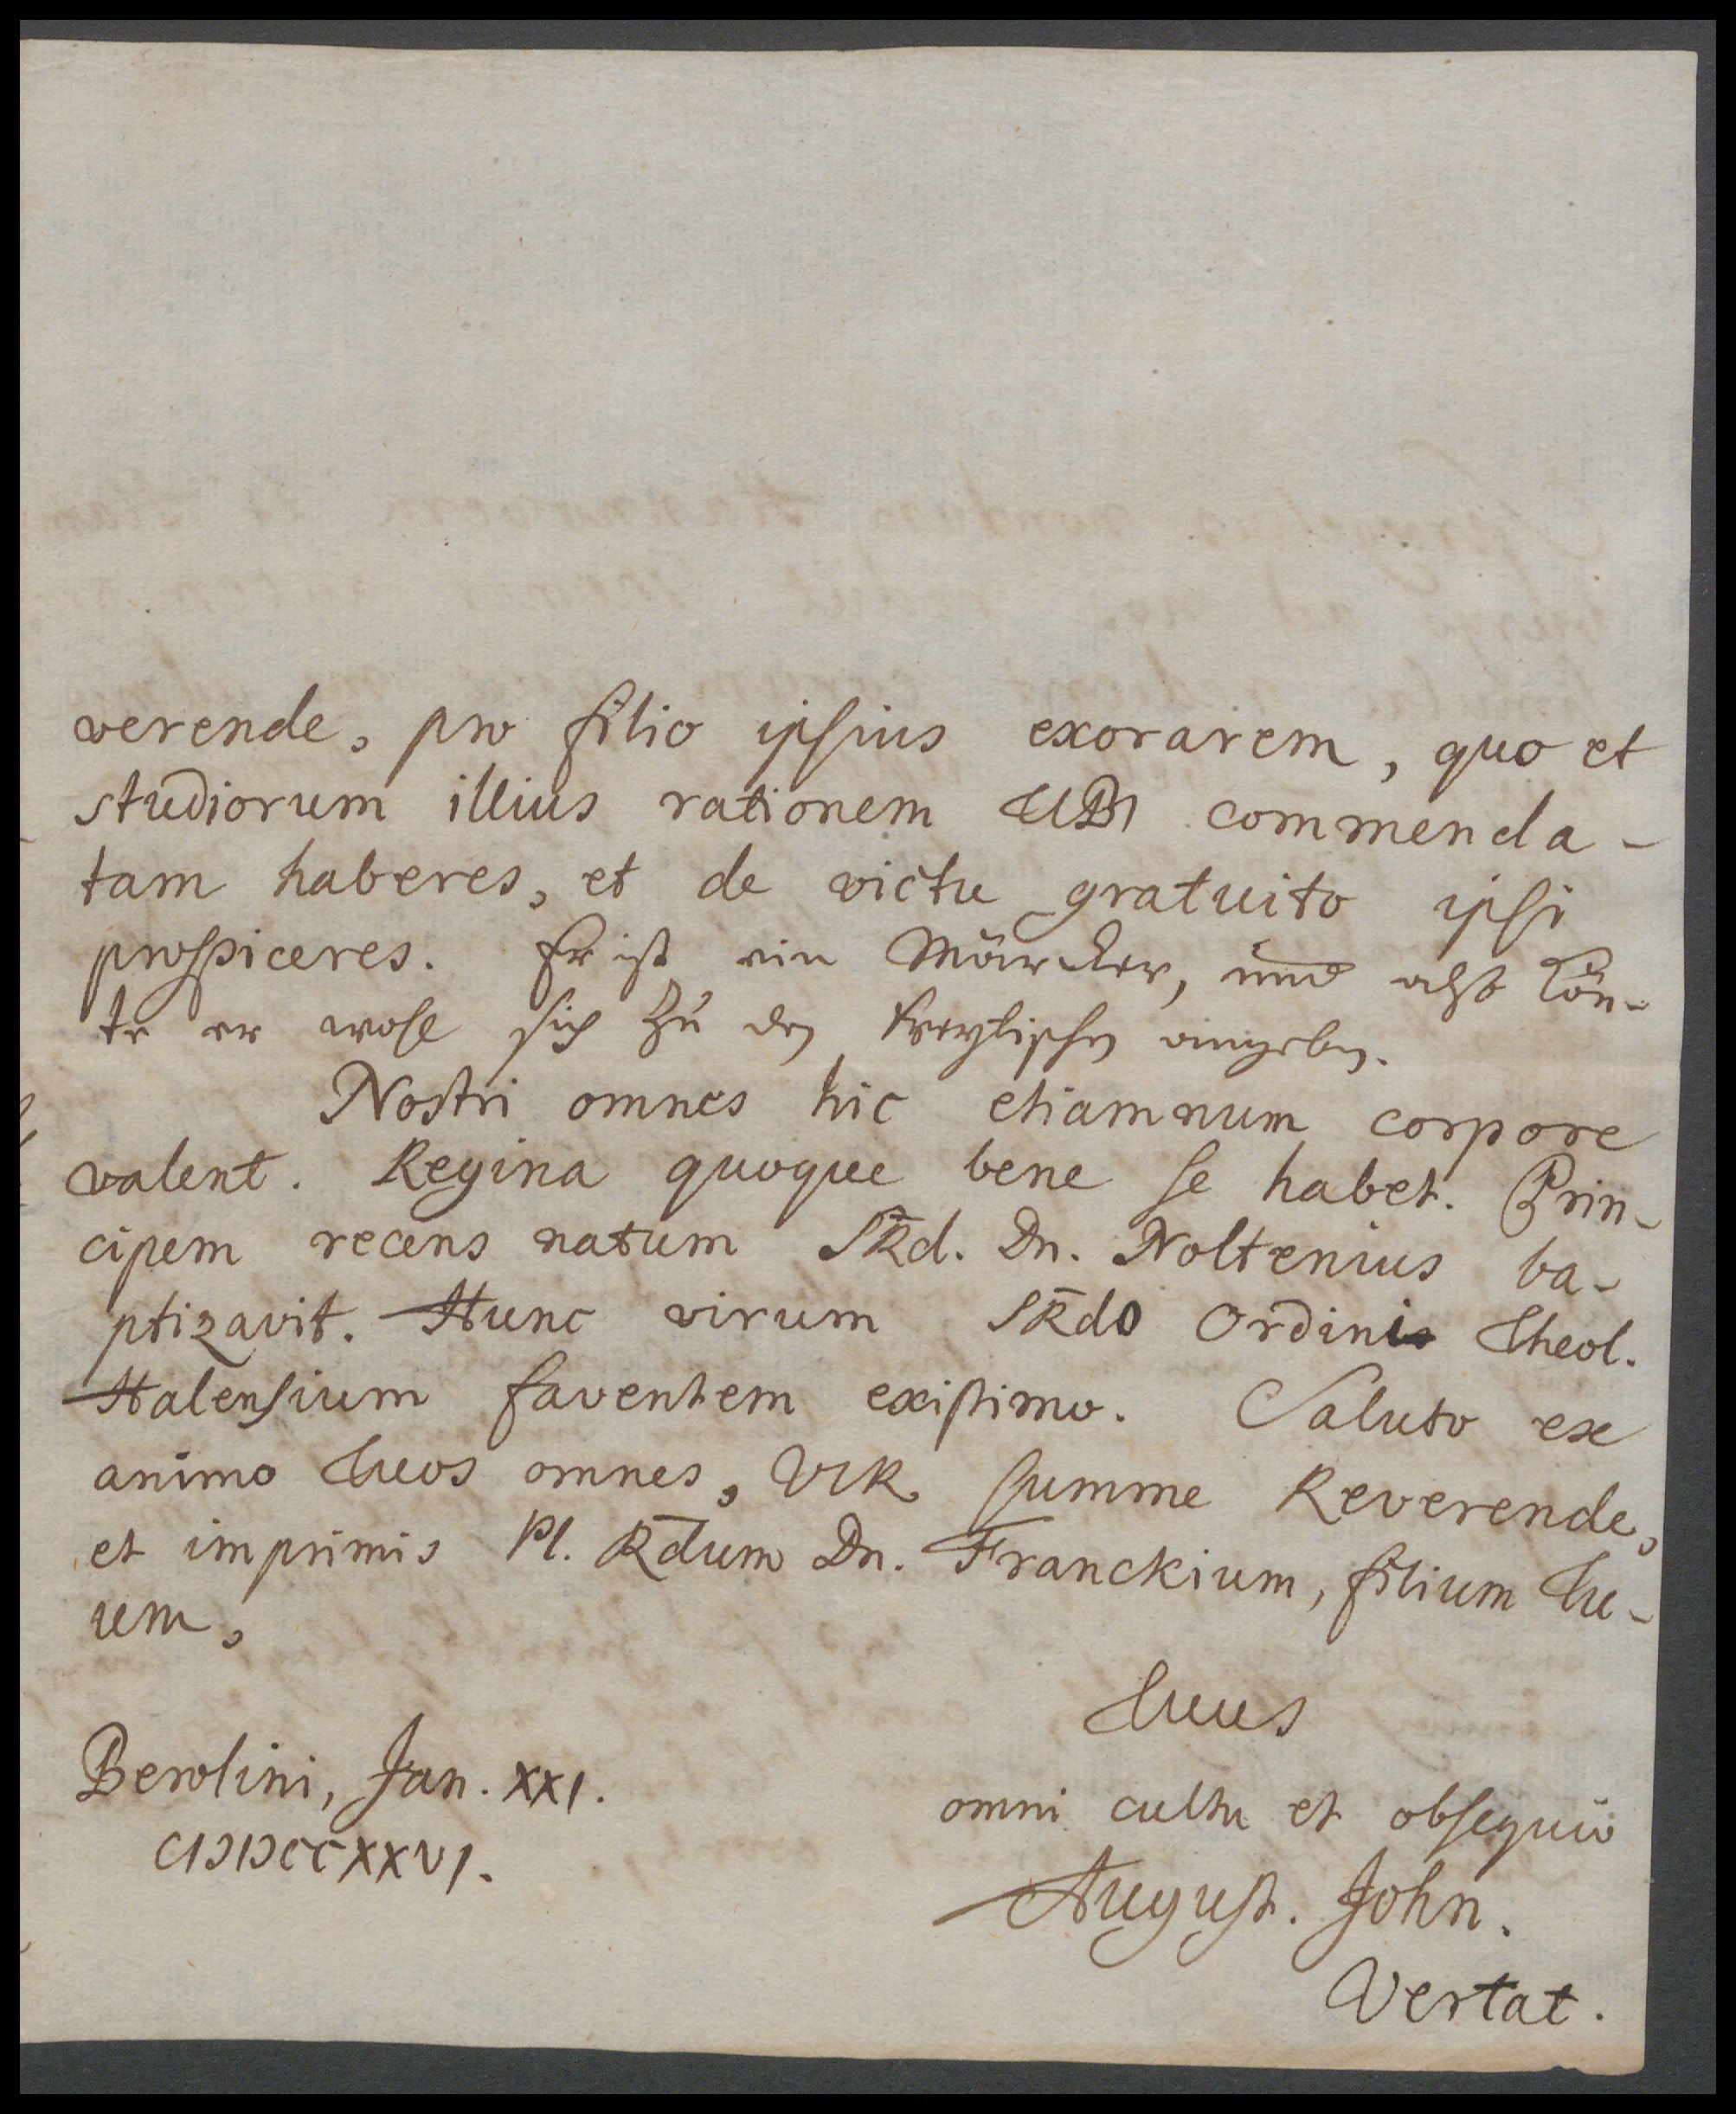 verende, pro filio ipsius exorarem, quo et
studiorum illius rationem TIBI commenda-
tam haberes, et de victu gratuito ipsi
prospiceres. Er ist ein Märcker, und also kön-
te er wohl sich zu den Freytischen angeben.
Nostri omnes hic etiamnum corpore
valent. Regina quoque bene se habet. Prin-
cipem recens natum SRd. Dn. Noltenius ba-
ptizavit. Hunc virum SRdo Ordini Theol.
Halensium faventem existimo. Saluto ex
animo Tuos omnes, VIR summe Reverende,
et imprimis Pl. Rdum Dn. Franckium, filium Tu-
um,
Tuus
Berolini, Jan. XXI.
omni cultu et obsequio
CIƆIƆCCXXVI.
August. John.
Vertat.